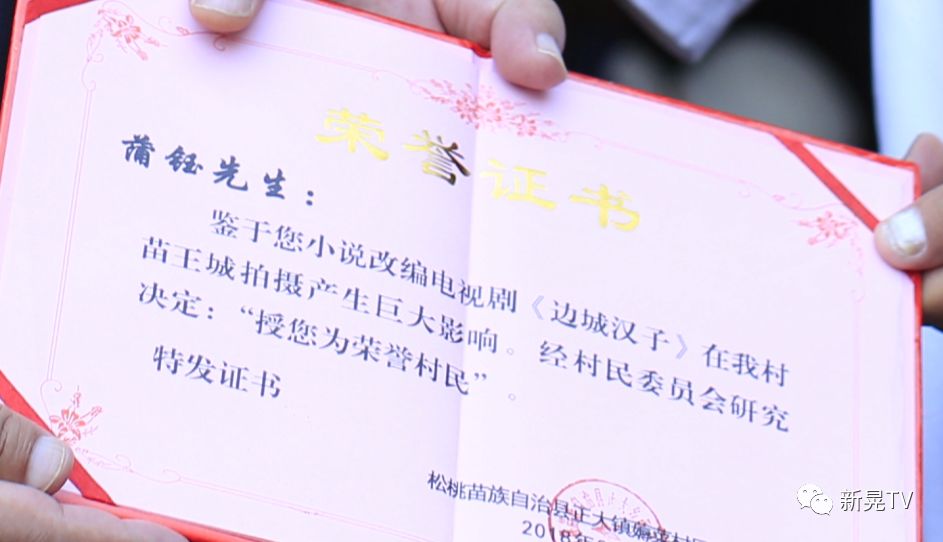 荣誉证书
蒲钰先生：
鉴于您小说改编电视剧《边城汉子》在我村
苗王城拍摄产生巨大影响。经村民委员会研究
决定：“授您为荣誉村民”。
特发证书
松桃苗族自治县正大镇薅菜村
2018年
新晃TV